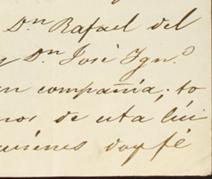 Dn. Rafael del
y Dn. José Ygn.o
en compañía; to
nos de esta
quienes doy fé